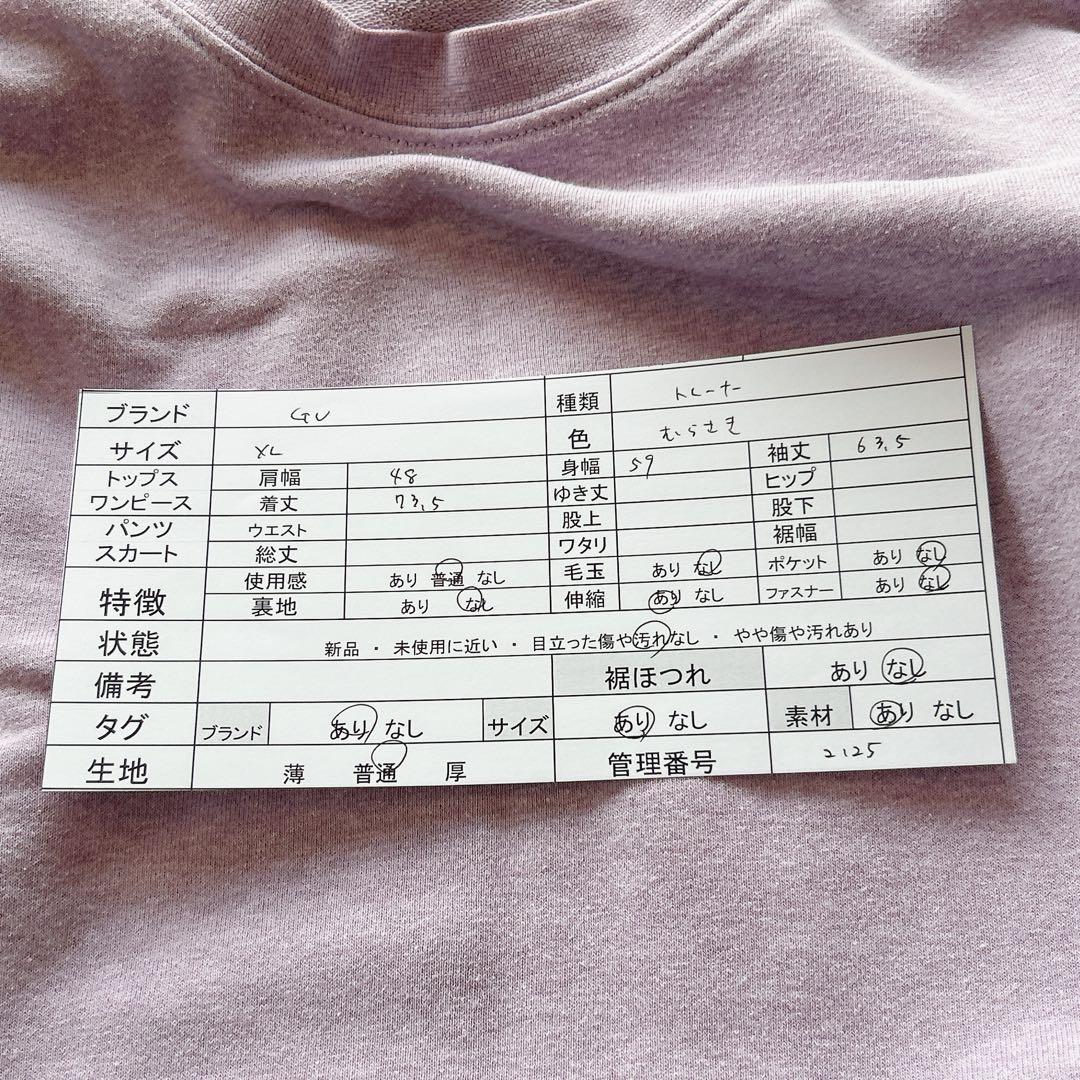 ブランド GU 種類 トレーナー
サイズ XL 色 むらさき
トップス 肩幅 48 身幅 59 袖丈 63.5
ワンピース 着丈 73.5 ゆき丈 ヒップ
パンツ ウエスト 股上 股下
スカート 総丈 ワタリ 裾幅
特徴 使用感 あり 普通 なし 毛玉 あり なし ポケット あり なし
裏地 あり なし 伸縮 あり なし ファスナー あり なし
状態 新品 ・ 未使用に近い ・ 目立った傷や汚れなし ・ やや傷や汚れあり
備考 裾ほつれ あり なし
タグ ブランド あり なし サイズ あり なし 素材 あり なし
生地 薄 普通 厚 管理番号 2125